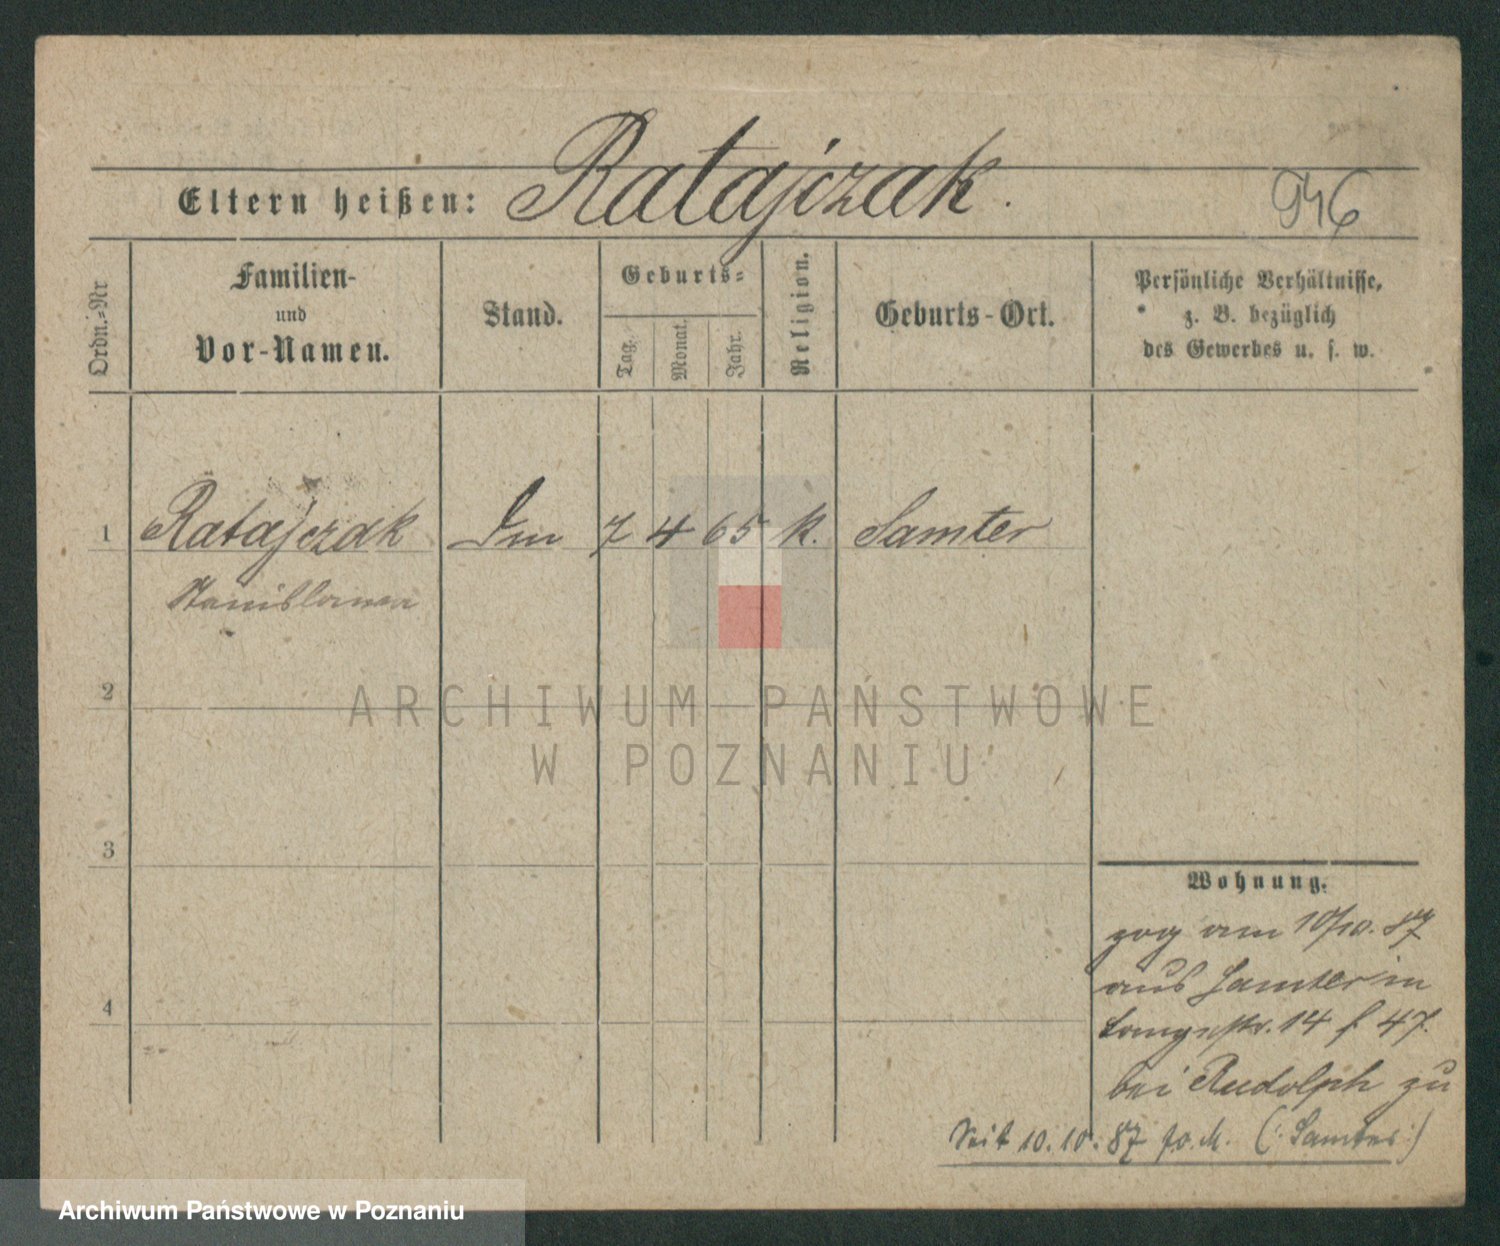 Eltern heißen: Ratajczak.
946
Ordn.-Nr
Familien-
und
Vor-Namen.
Stand.
Geburts-
Tag.
Monat.
Jahr.
Religion.
Geburts-Ort.
Persönliche Verhältnisse,
z. B. bezüglich
des Gewerbes u. s. w.
1 Ratajczak 7 4 65 k. Samter
Stanislawa
2
3
4
Wohnung.
zog am 10/10. 87
aus Samter in
Langestr. 14 f 47.
bei Rudolph zu
Seit 10.10.87 (: Samter :)
ARCHIWUM PAŃSTWOWE
W POZNANIU
Archiwum Państwowe w Poznaniu